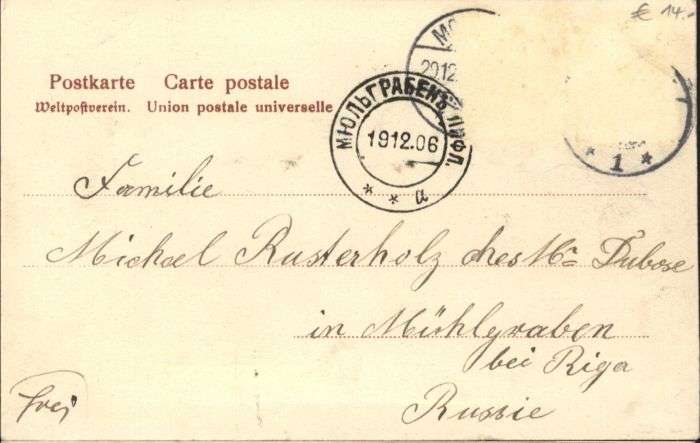 € 14.-
Postkarte Carte postale
Weltpostverein. Union postale universelle
МЮЛЬГРАБЕНЪ ЛИФЛ.
1912.06
* * а
2012
* 1 *
Familie
Michael Rusterholz chez Mr Dubose
in Mühlgraben
bei Riga
Russie
frei